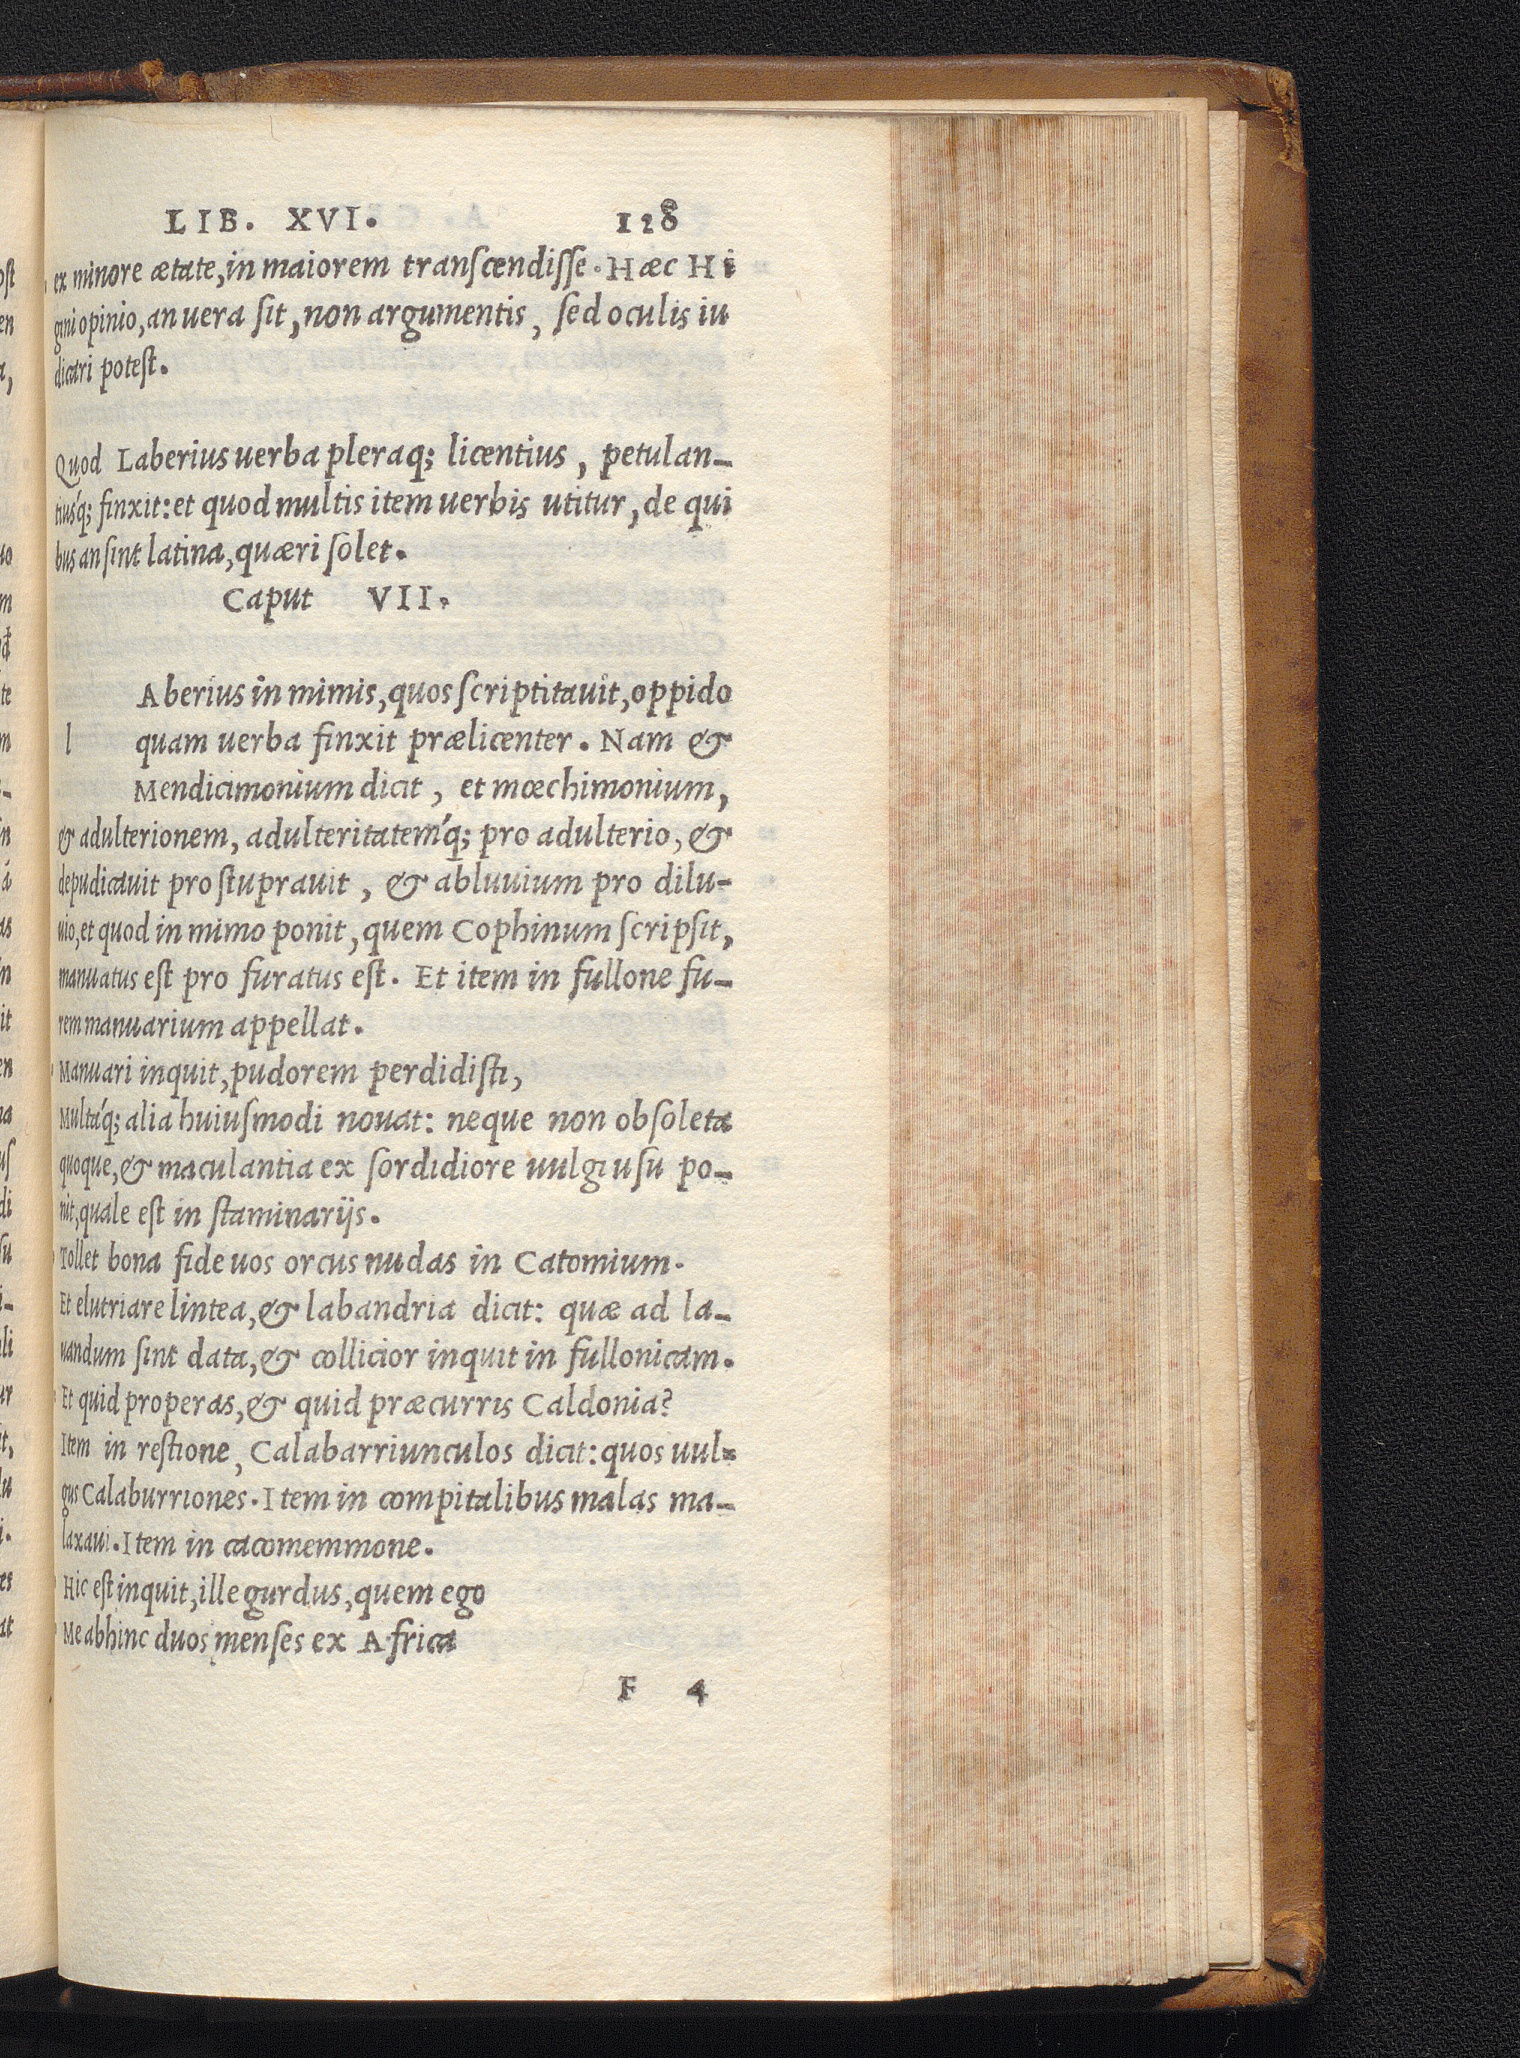 LIB. XVI. 128
ex minore ætate, in maiorem transcendisse. Hæc Hi
gini opinio, an uera sit, non argumentis, sed oculis iu
dicari potest.
Quod Laberius uerba pleraq; licentius, petulan-
tiusq́; finxit: et quod multis item uerbis utitur, de qui
bus an sint latina, quæri solet.
Caput VII.
Aberius in mimis, quos scriptitauit, oppido
l quam uerba finxit prælicenter. Nam &
Mendicimonium dicit, et mœchimonium,
& adulterionem, adulteritatemq́; pro adulterio, &
depudicauit pro stuprauit, & abluuium pro dilu-
uio, et quod in mimo ponit, quem Cophinum scripsit,
manuatus est pro furatus est. Et item in fullone fu-
rem manuarium appellat.
Manuari inquit, pudorem perdidisti,
Multáq; alia huiusmodi nouat: neque non obsoleta
quoque, & maculantia ex sordidiore uulgi usu po-
nit, quale est in staminarijs.
Tollet bona fide uos orcus nudas in Catomium.
Et elutriare lintea, & labandria dicit: quæ ad la-
uandum sint data, & collicior inquit in fullonicam.
Et quid properas, & quid præcurris Caldonia?
Item in restione, Calabarriunculos dicit: quos uul-
gus Calaburriones. Item in compitalibus malas ma-
laxaui. Item in cacomemmone.
Hic est inquit, ille gurdus, quem ego
Me abhinc duos menses ex Africa
F 4